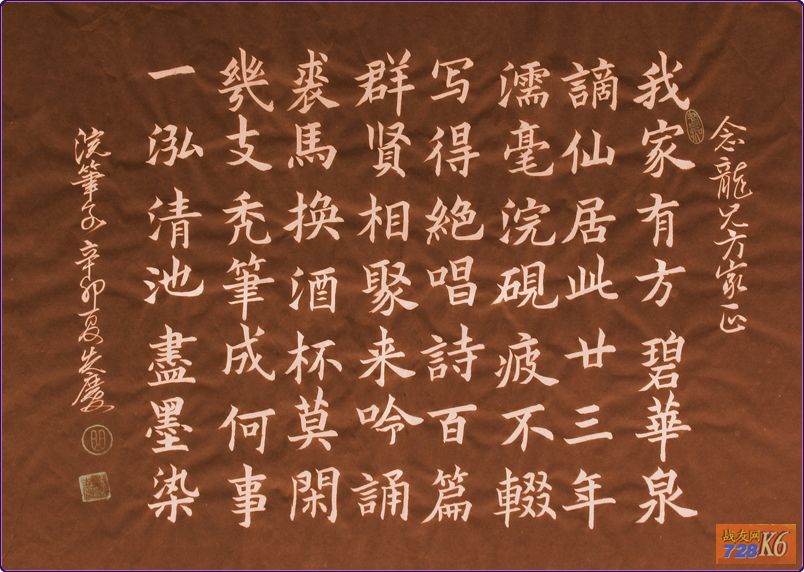 念龍兄方家正
我家有方碧華泉
謫仙居此廿三年
濡毫浣硯疲不輟
写得絕唱詩百篇
群贤相聚来吟誦
裘馬换酒杯莫閑
幾支秃筆成何事
一泓清池盡墨染
浣筆子辛卯夏
战友网
728K6